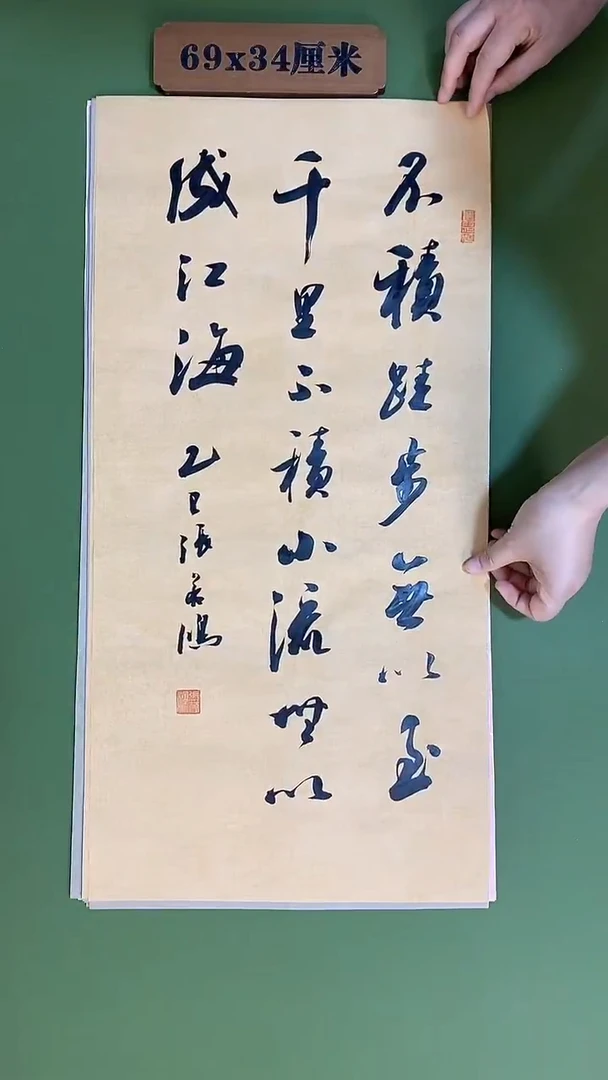 69x34厘米
不積跬步無以至
千里不積小流無以
成江海
乙巳張善鴻